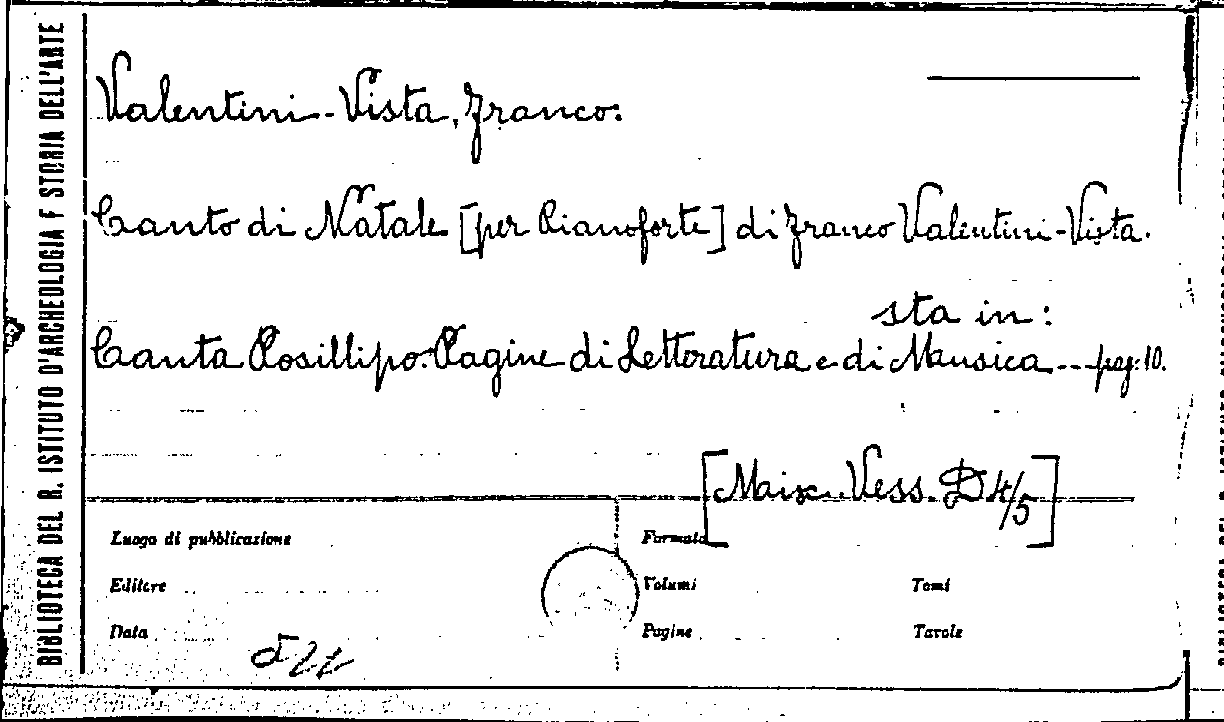 BIBLIOTECA DEL R. ISTITUTO D'ARCHEOLOGIA E STORIA DELL'ARTE
Valentini-Vista, Franco.
Canto di Natale [per Pianoforte] di Franco Valentini-Vista.
sta in:
Canta Posillipo: Pagine di Letteratura e di Musica --- pag: 10.
[Vess. D 4/5]
Luogo di pubblicazione
Formato
Editore
Volumi
Tomi
Data
Pagine
Tavole